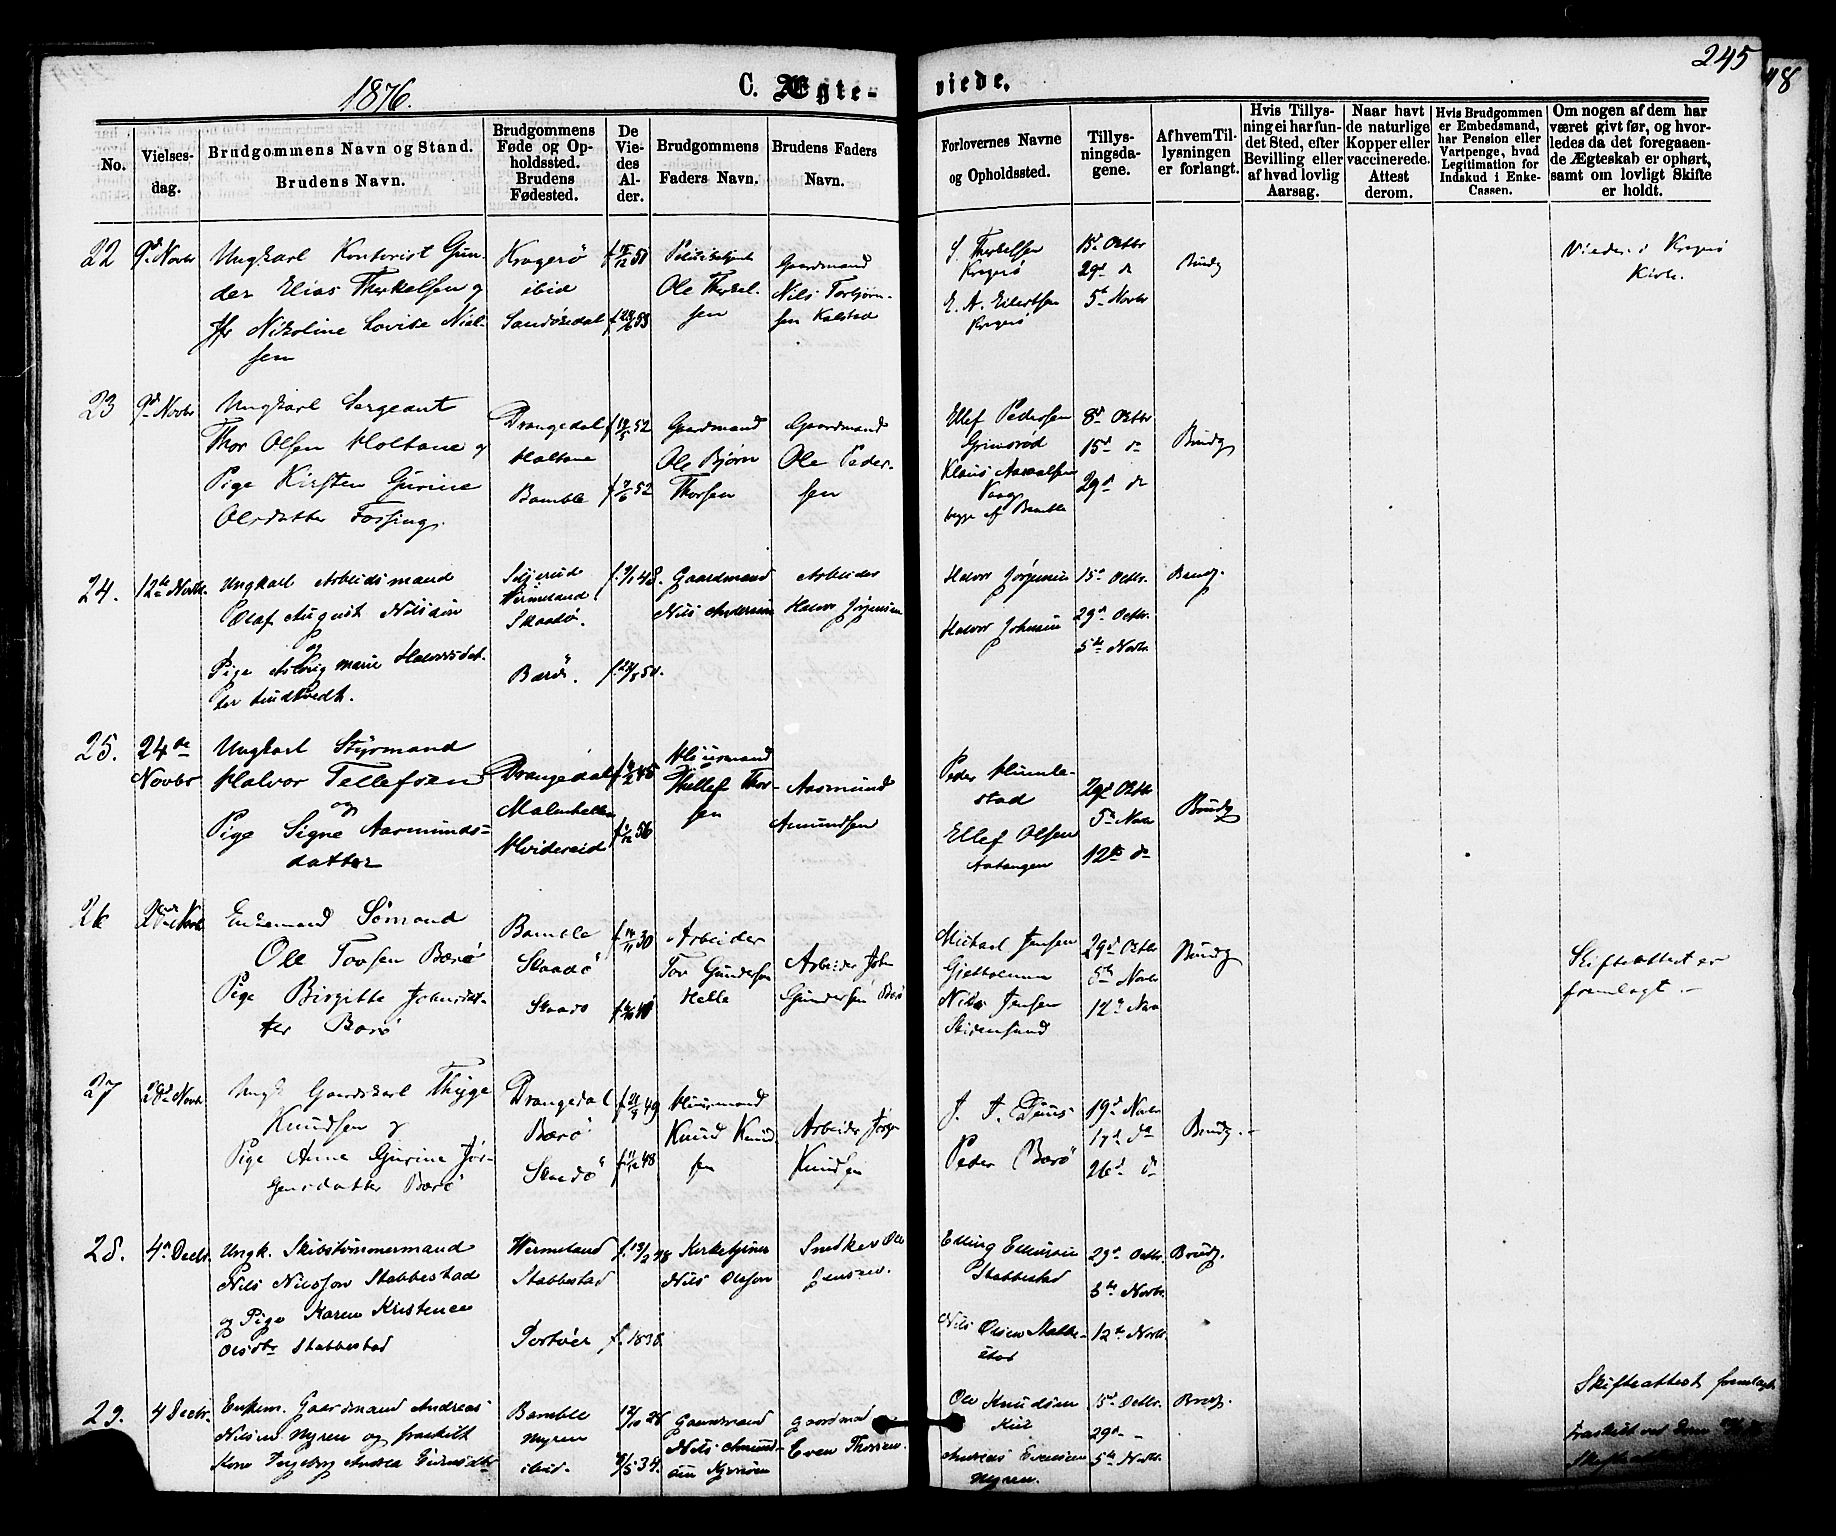 245
48
1876.
C. Ægte-
viede.
No.
Vielses-
dag.
Brudgommens Navn og Stand.
Brudens Navn.
Brudgommens
Føde og Op-
holdssted.
Brudens
Fødested.
De
Vie-
des
Al-
der.
Brudgommens
Faders Navn.
Brudens Faders
Navn.
Forlovernes Navne
og Opholdssted.
Tillys-
ningsda-
gene.
Af hvem Til-
lysningen
er forlangt.
Hvis Tillys-
ning ei har fun-
det Sted, efter
Bevilling eller
af hvad lovlig
Aarsag.
Naar havt
de naturlige
Kopper eller
vaccinerede.
Attest
derom.
Hvis Brudgommen
er Embedsmand,
har Pension eller
Vartpenge, hvad
Legitimation for
Indskud i Enke-
Cassen.
Om nogen af dem har
været givt før, og hvor-
ledes da det foregaaen-
de Ægteskab er ophørt,
samt om lovligt Skifte
er holdt.
22
9d Novbr
Ungkarl Kontorist Gun-
der Elias Therkelsen og
Jfr Nikoline Lovise Niel-
sen
Kragerø
ibid
Sandøkedal
Politibetjent
Ole Therkel-
sen
Gaardmand
Nils Torbjørn-
sen Kalstad
S. Therkelsen
Kragerø
E. A. Eilertsen
Kragerø
15d Octbr
29d d
5te Novbr
Brudg
Viedes i Kragerø
Kirke.
23
9d Novbr
Ungkarl Sergeant
Thor Olsen Holtane og
Pige Kirsten Gurine
Olsdatter Fossing.
Drangedal
Holtane
Bamble
f 52
f 52
Gaardmand
Ole Bjørn
Thorsen
Gaardmand
Ole Peder-
sen
Ellef Pedersen
Grimsrød
Klaus Aasvalsen
Vaag
begge af Bamble
8d Octbr
15d d
29d d
Brudg
24.
12te Novbr.
Ungkarl Arbeidsmand
Olaf August Nilssøn
og
Pige marie Halvorsdat-
ter Lundtvedt.
Vermeland
Skaadø.
Barø.
f. 48.
f. 50.
Gaardmand
Nils Anderssøn
Arbeider
Halvor Jørgensen
Halvor Jørgensen
Halvor Johnsen
15d Octbr.
29d Octbr.
5te Novbr.
Brudg.
25.
24de
Novbr
Ungkarl Styrmand
Halvor Tellefsen
og
Pige Signe Aasmunds-
datter
Drangedal
Malmhellen
Hvidereid
f 45
f 56
Huusmand
Thellef Thor-
sen
Aasmund
Amundsen
Peder Humle-
stad
Ellef Olsen
Aatangen
29d Octbr
5te Novbr
12te d
Brudg
26
Enkemand Sømand
Ole Tovsen Barø
Pige Birgitte Johnsdat-
ter Barø
Bamble
Skaadø
Skaadø
f 30
Arbeider
Tov Gundersen
Helle
Arbeider John
Gundersen Barø
Michael Jensen
Gjetholmen
Nils Jensen
Skidensund
29d Octbr
5te Novbr
12te Novbr
Brudg
Skifteattest er
fremlagt.
27
28d Novbr
Ungk Gaardskarl Thyge
Knudsen og
Pige Anne Gurine Jør-
gensdatter Barø
Drangedal
Barø
Skaadø
f 49
f 48
Huusmand
Knud Knud-
sen
Arbeider Jørgen
Knudsen
Peder Barø
19d Novbr
26d d
Brudg.
28.
4de Decbr.
Ungk. Skibstømmermand
Nils Nilsson Stabbestad
og Pige Karen Kristence
Olsdtr Stabbestad
Wermeland
Stabbestad
Portøer
f. 13/2 48
f. 1838.
Kirketjener
Nils Olsson
Snedker Ole
Jensen.
Elling Ellingsen
Stabbestad
Nils Olsen Stabbe-
stad
29d Octbr.
5te Novbr.
12te Novbr.
Brudg.
29.
4 Decbr.
Enkem. Gaardmand Andreas
Nilsen Nyren og fraskilt
Kone Ingeborg Andrea Evensdtr
Bamble
Nyren
ibid.
12/10 26
7/5 34.
Gaardmand
Nils Amund-
sen
Gaardmand
Even Thorsen.
Ole Knudsen
Andreas Evensen
Nyren.
15d Octbr.
29d -
5te Novbr.
Brudg.
Skifteattest fremlagt